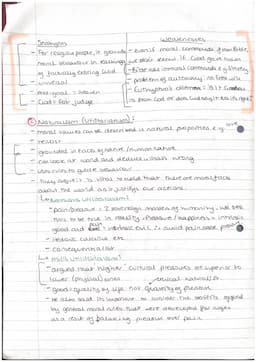 Strengths
- For religious people, it grounds
moral behaviour in teachings
of factually existing God
- universal
- end-goal = heaven
- God = fair judge
Weaknesses
- even if moral commands from Bible,
we don't know if God gave them
- Bible has immoral commands e.g slavery
- problem of autonomy: no free will
- Euthyphro dilemma = is it
is from God or does God say it bcs it's right?
② Naturalism (Utilitarianism):
- moral values can be described in natural properties e.g. love
- realist
- grounded in facts of nature / human nature
- can look at world and deduce what's wrong
- uses this to guide behaviour
- they argue it is vital to hold that there are moral facts
about the world as it justifies our actions.
↳ Bentham's Utilitarianism:
- pain/pleasure = 2 sovereign masters of humanity. We see
this to be true in reality. Pleasure / happiness = intrinsic
good and pain = intrinsic evil. ∴ avoid pain seek pleasure
- hedonic calculus etc
- consequentialist
↳ Mill's Utilitarianism:
- argued that higher, cultural pleasures are superior to
lower (physical) ones
ethical naturalist.
- good = quality of life not quantity of pleasure
- he also said its important to consider the benefits offered
by general moral rules that were developed for ages
as a result of balancing pleasure over pain